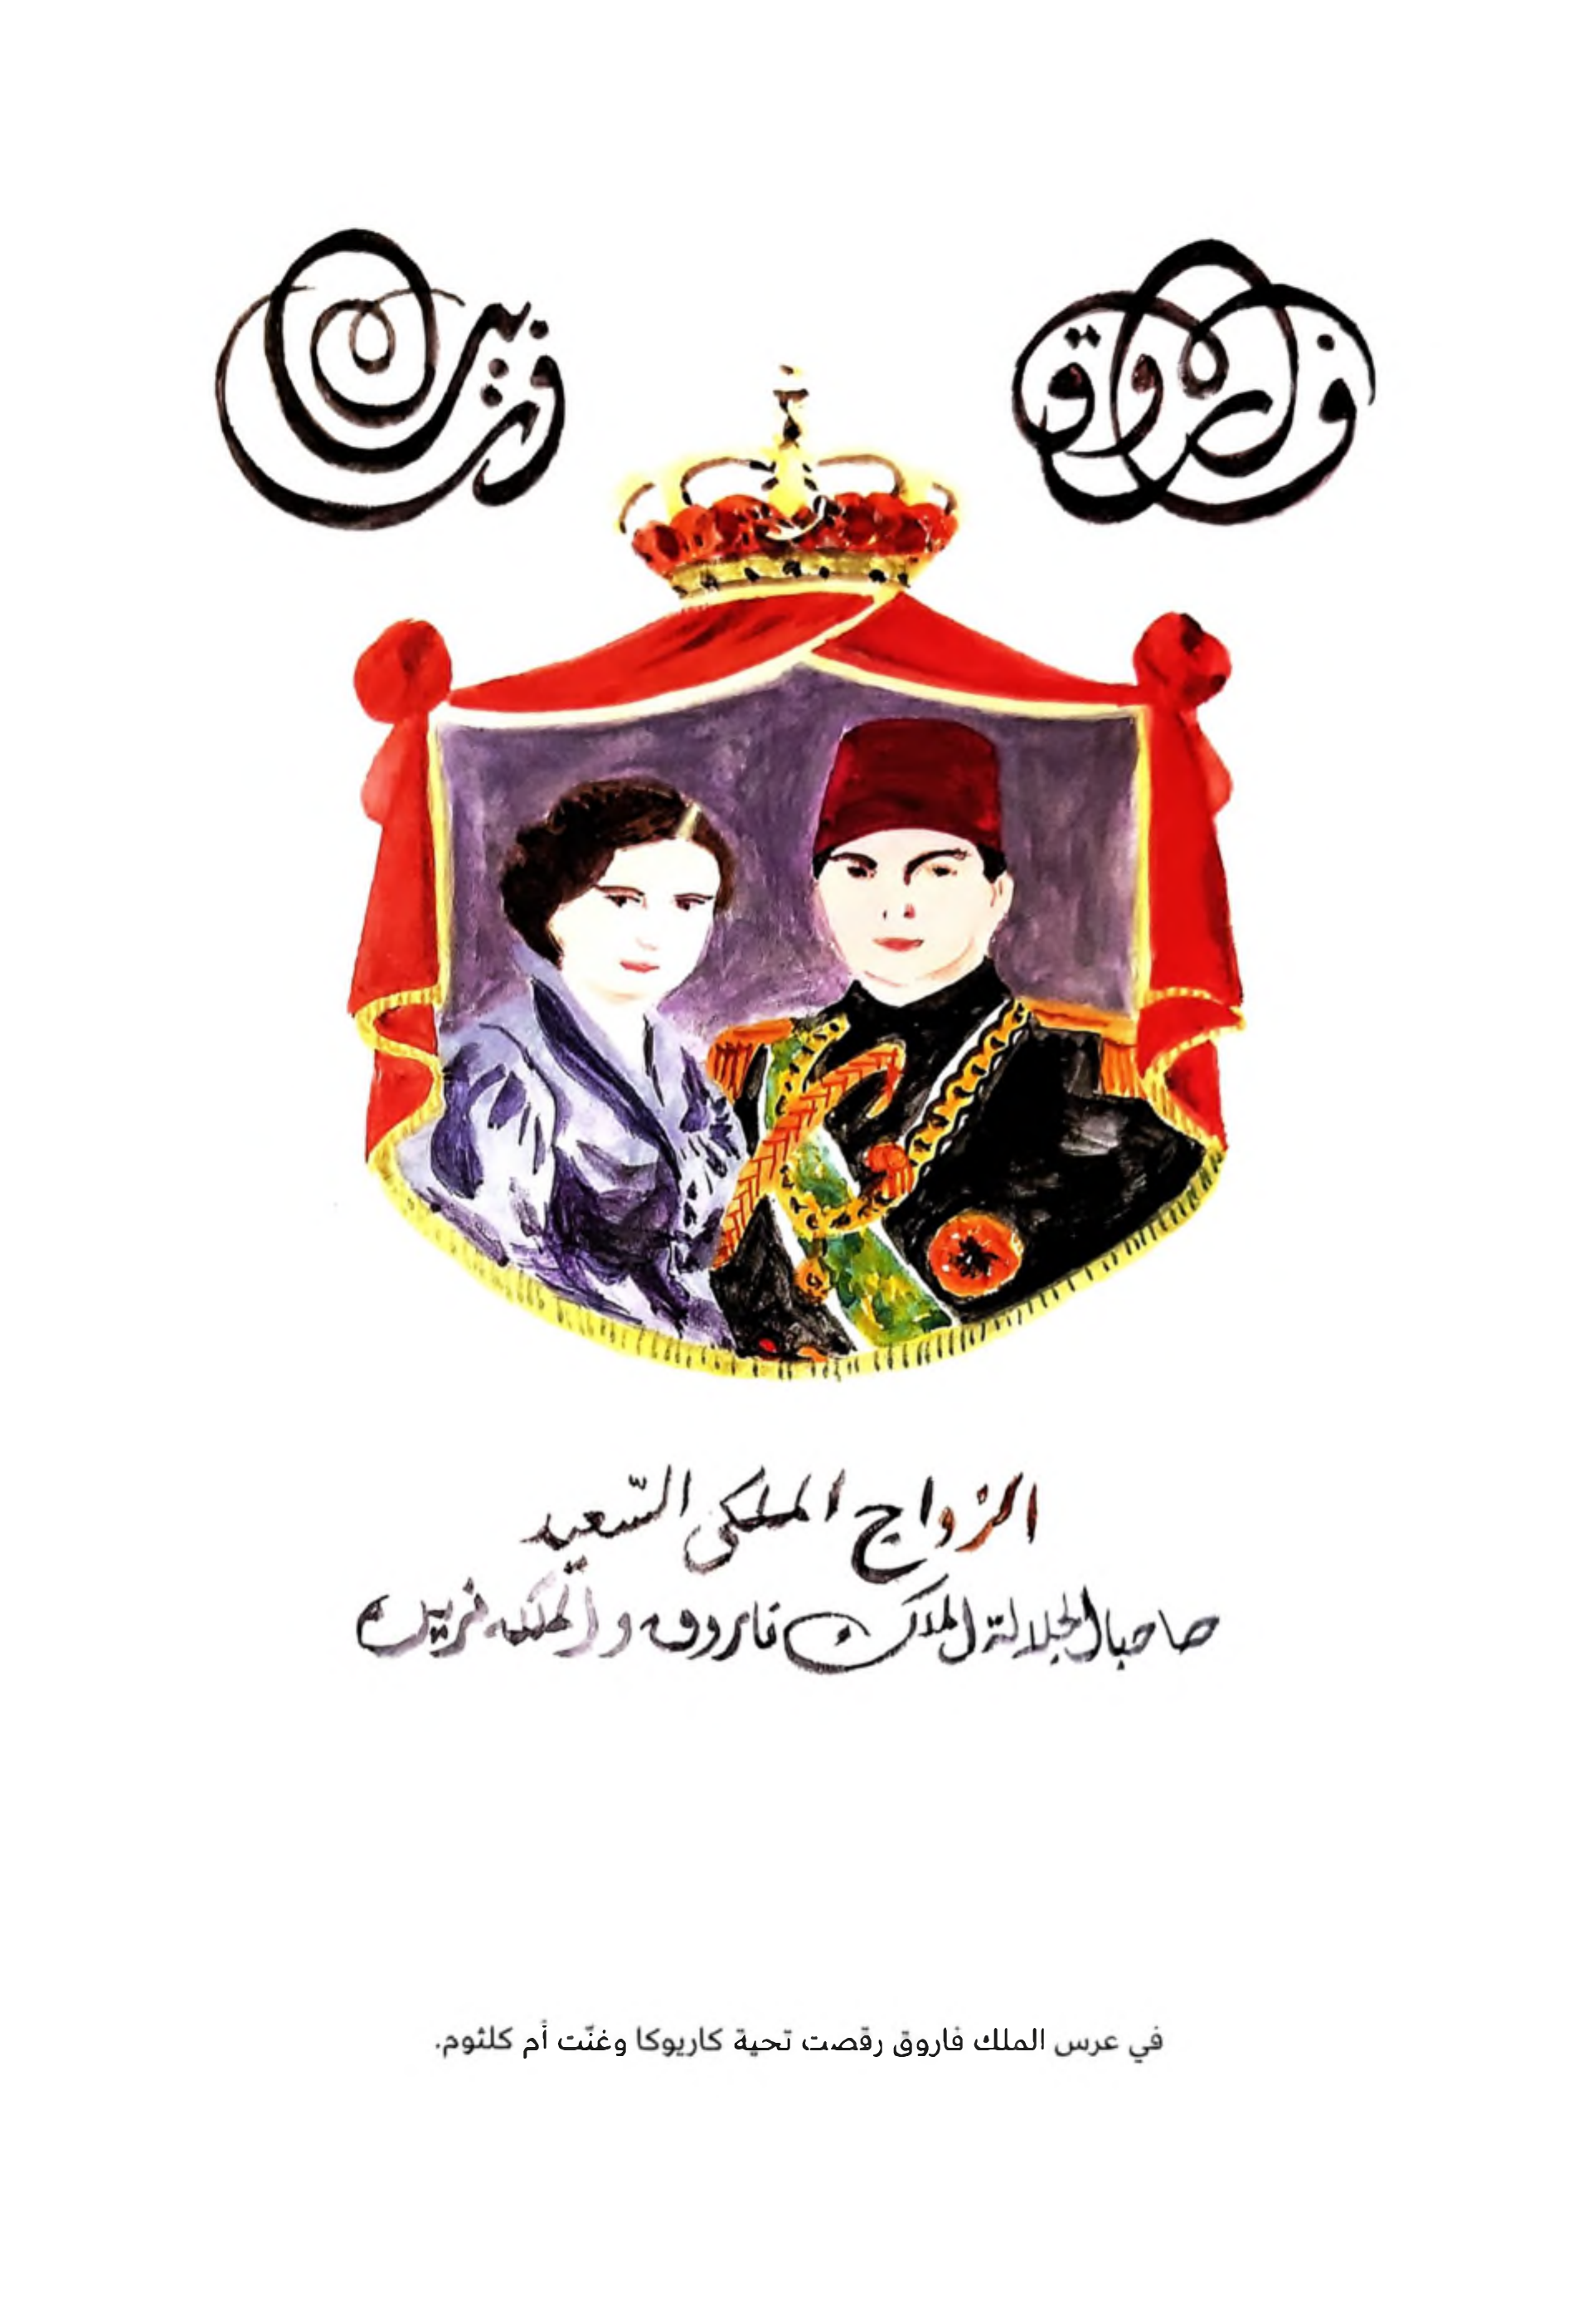 فاروق
فريدة
الزواج الملكى السّعيد
صاحبا الجلالة الملك فاروق والملكه فريدة
في عرس الملك فاروق رقصت تحية كاريوكا وغنّت أم كلثوم.